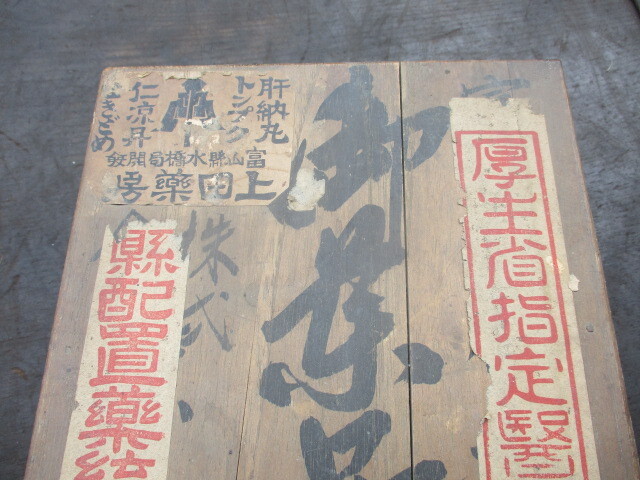 厚生省指定醫
御薬品
肝納丸
トンプク
仁凉丹
せきどめ
富山縣水橋局開發
上田藥房
株式
縣配置藥統